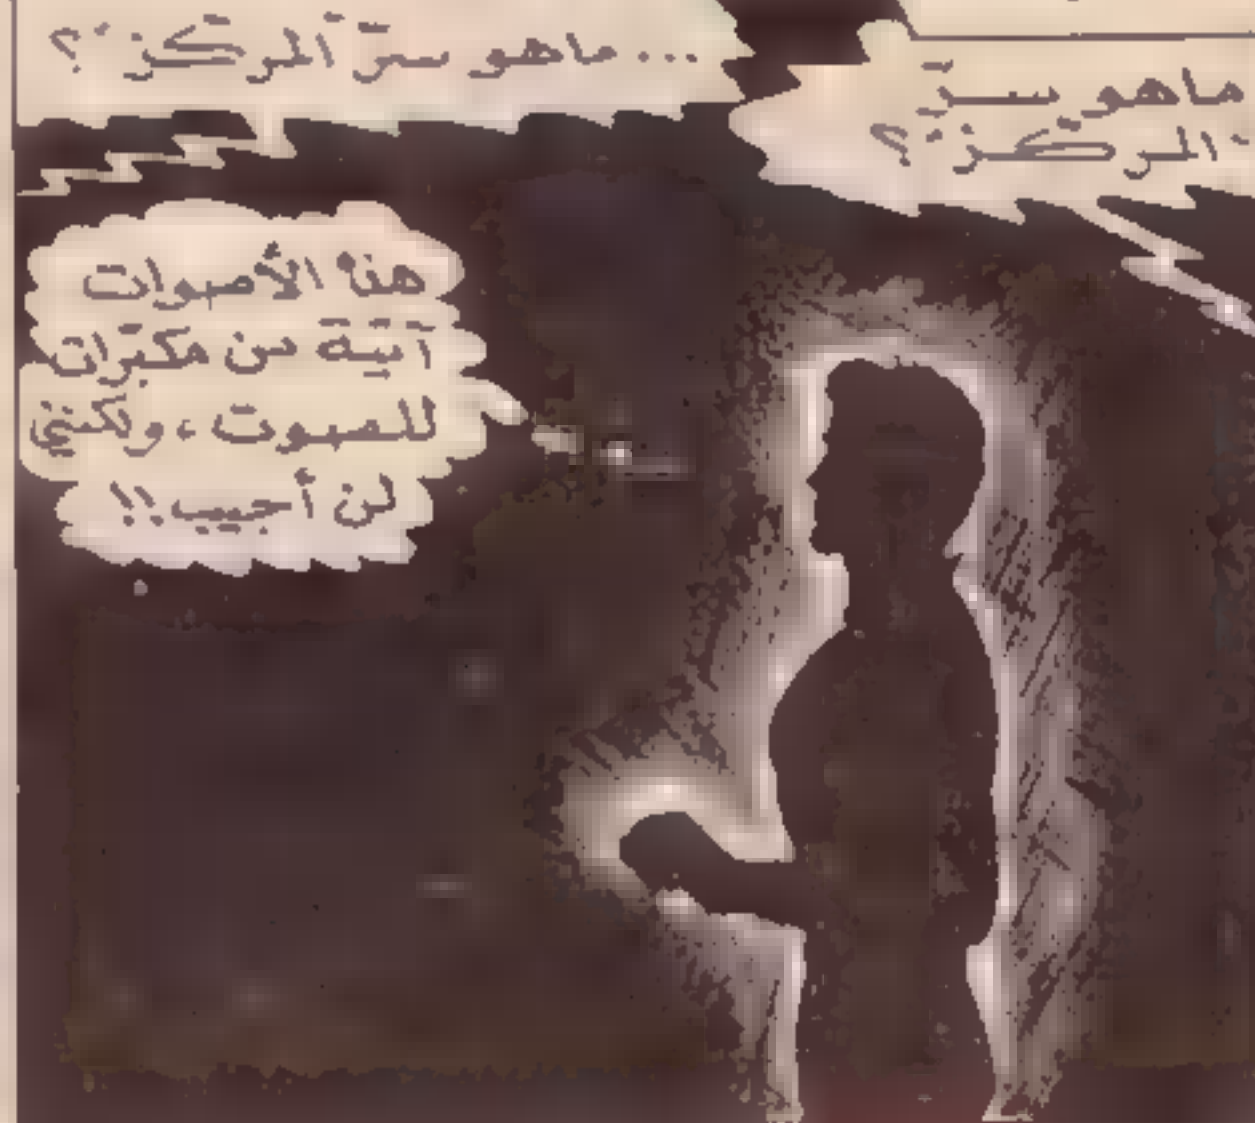 ماهو سرّ
"المركز"؟
... ماهو سرّ المركز"؟
هذه الأصوات
آتية من مكبّرات
للصوت، ولكنني
لن أجيب!!